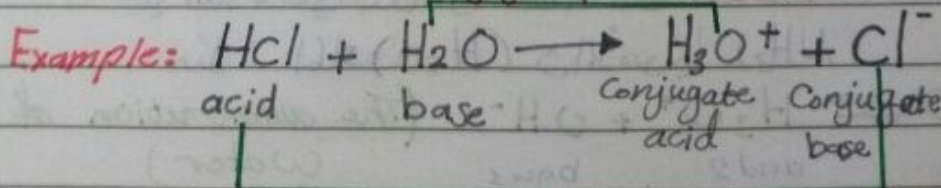 Example: HCl + H₂O ⟶ H₃O⁺ + Cl⁻
acid base Conjugate acid Conjugate base